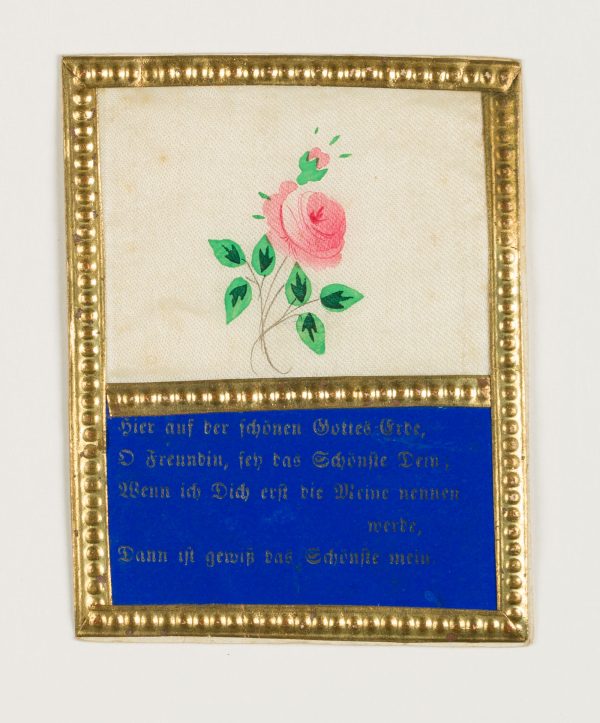 Hier auf der schönen Gottes-Erde,
O Freundin, sey das Schönste Dein,
Wenn ich Dich erst die Meine nennen
werde,
Dann ist gewiß das Schönste mein.